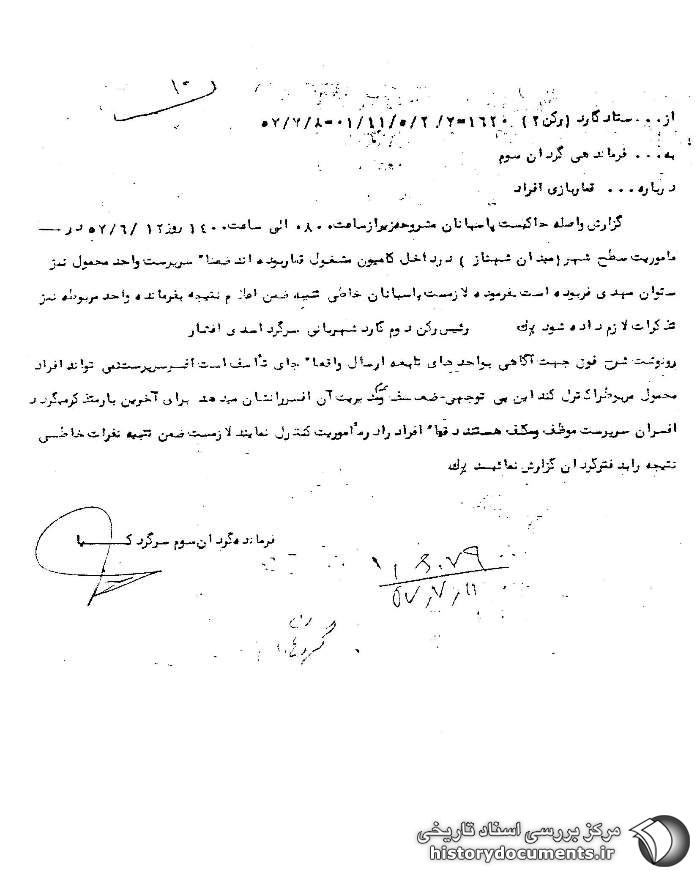 ۱۰
از... ستاد گارد (رکن ۲) ۱۶۲۰=۲/ ۲/۵/۱۱/۰۱=۵۷/۷/۸
به... فرماندهی گردان سوم
درباره... قماربازی افراد
گزارش واصله حاکیست پاسبانان مشروحه زیر از ساعت ۰۸۰۰ الی ساعت ۱۴۰۰ روز ۱۲ /۵۷/۶ در
ماموریت سطح شهر (میدان شهناز ) در داخل کامیون مشغول قمار بوده اند ضمنا" سرپرست واحد محمول نیز
ستوان مهدی فر بوده است بفرموده لازمست پاسبانان خاطی تنبیه ضمن اعلام نتیجه بفرمانده واحد مربوطه نیز
تذکرات لازم داده شود برك رئیس رکن دوم گارد شهربانی سرگرد اسدی افشار
رونوشت شرح فوق جهت آگاهی بواحدهای تابعه ارسال واقعا" جای تأسف است افسر سرپرست نمی تواند افراد
محمول مربوطه را کنترل کند این بی توجهی-ضعف مدیریت آن افسر را نشان میدهد برای آخرین بار متذکر میگردد
افسران سرپرست موظف و مکلف هستند دقیقا" افراد را در مأموریت کنترل نمایند لازمست ضمن تنبیه نفرات خاطی
نتیجه را بدفتر گردان گزارش نمائید برك
فرمانده گردان سوم سرگرد
۵۷,۷,۱۱
مرکز بررسی اسناد تاریخی
historydocuments.ir